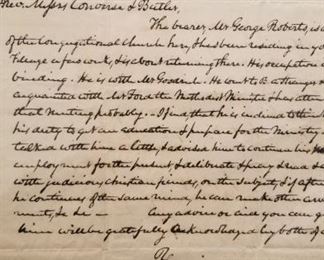 Rev. Messrs Converse & Butler,
The bearer, Mr George Roberts, is a
of the Congregational Church here, & has been residing in yo
Village a few weeks, & is about returning there. His occupation
binding. He is with Mr Goodrich. He won't be a stranger
acquainted with Mr Ford the Methodist Minister & has atten
that Meeting probably. - I find that he is inclined to think
his duty to get an education & prepare for the Ministry
talked with him a little, & advised him to continue his
employment for the present, & deliberate & pray & read &
with judicious christian friends, on the subject, & if after
he continues of the same mind, he can make other arr
ments, &c &c - Any advice or aid you can g
him will be gratefully acknowledged by both of
R